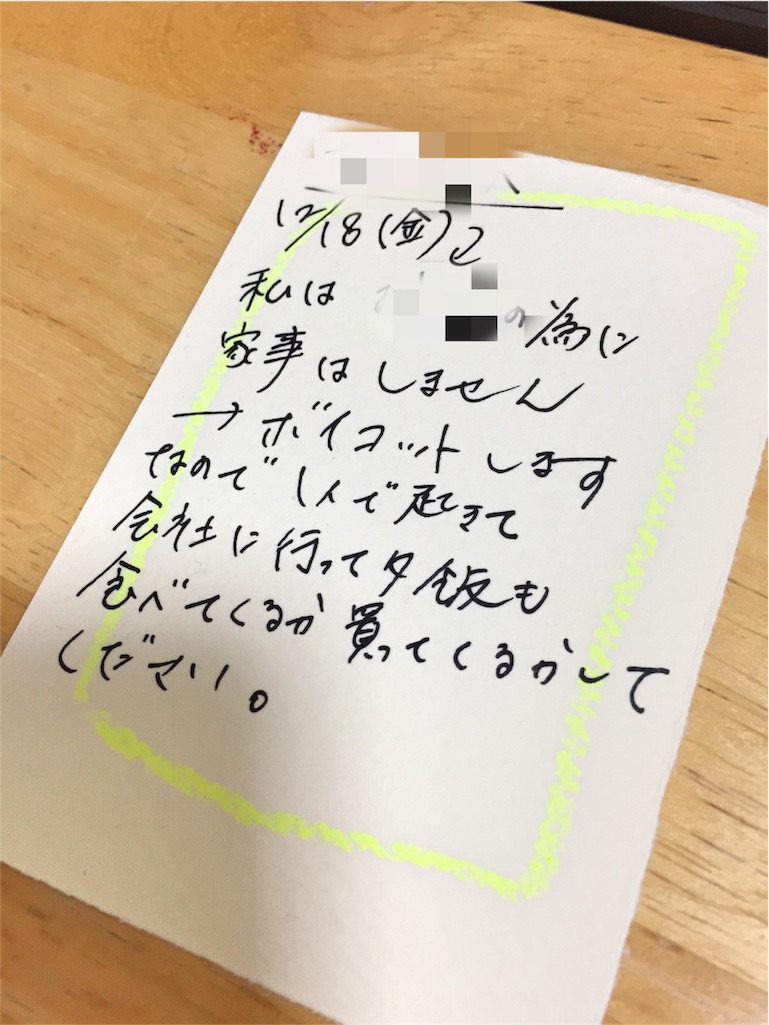 12/18(金)
私は の為に
家事はしません
→ボイコットします
なので1人で起きて
会社に行って夕飯も
食べてくるか買ってくるかして
ください。